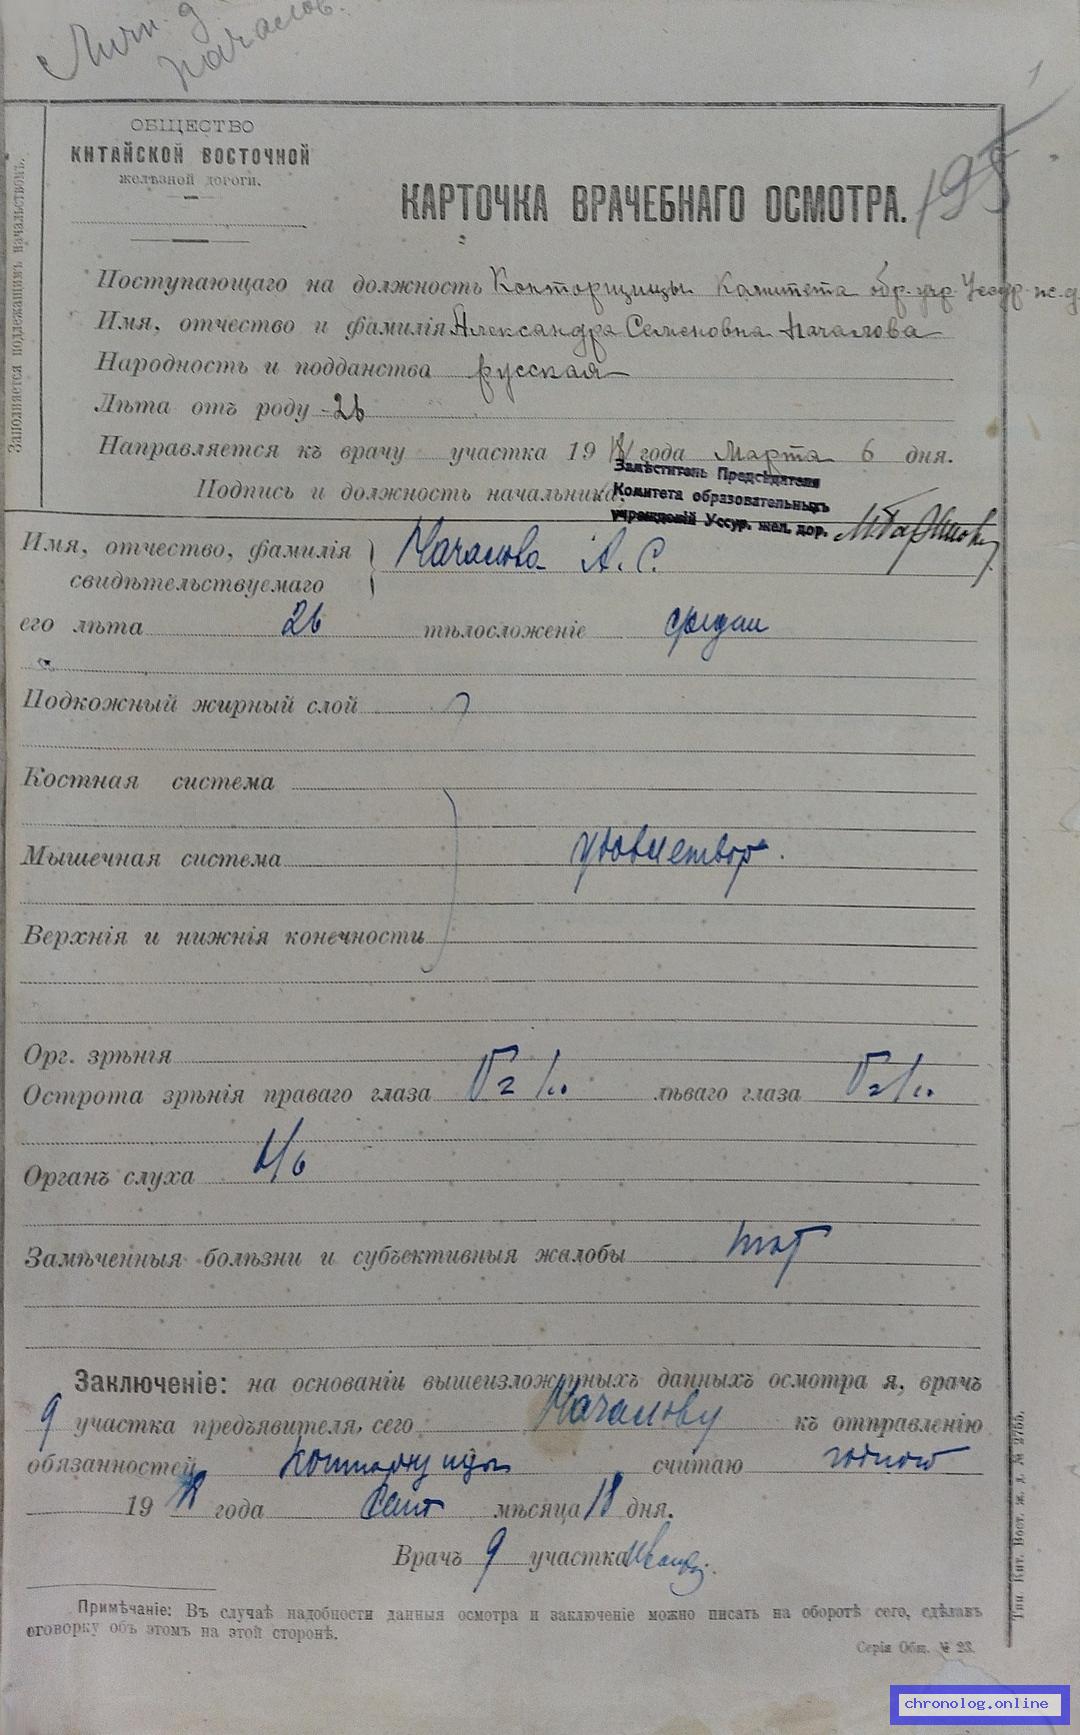 Личн. д.
Началов.
1
ОБЩЕСТВО
КИТАЙСКОЙ ВОСТОЧНОЙ
желѣзной дороги.
Заполняется подлежащимъ начальствомъ.
КАРТОЧКА ВРАЧЕБНАГО ОСМОТРА. 195
Поступающаго на должность Конторщицы Комитета обр. учр. Уссур. ж. д
Имя, отчество и фамилія Александра Семеновна Началова
Народность и подданства русская
Лѣта отъ роду 26
Направляется къ врачу участка 19 18 года Марта 6 дня.
Подпись и должность начальника:
Замѣститель Предсѣдателя
Комитета образовательныхъ
учрежденій Уссур. жел. дор.
Имя, отчество, фамилія
свидѣтельствуемаго
Началова А. С.
его лѣта 26 тѣлосложеніе средн
Подкожный жирный слой
Костная система
Мышечная система удовлетвор.
Верхнія и нижнія конечности
Орг. зрѣнія
Острота зрѣнія праваго глаза лѣваго глаза
Органъ слуха
Замѣченныя болѣзни и субъективныя жалобы нѣт
Заключеніе: на основаніи вышеизложенныхъ данныхъ осмотра я, врачъ
9 участка предъявителя, сего Началову къ отправленію
обязанностей конторщицы считаю годной
19 18 года Сент мѣсяца 18 дня.
Врачъ 9 участка
Примѣчаніе: Въ случаѣ надобности данныя осмотра и заключеніе можно писать на оборотѣ сего, сдѣлавъ
оговорку объ этомъ на этой сторонѣ.
Серія Общ. № 23.
Тип. Кит. Вост. ж. д. № 2755.
chronolog.online